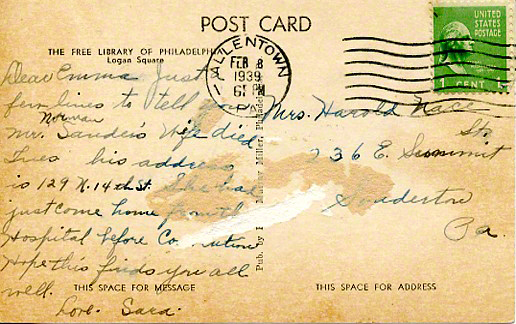 POST CARD
THE FREE LIBRARY OF PHILADELPHIA
Logan Square
ALLENTOWN
FEB 8
1939
6 PM
PA.
UNITED
STATES
POSTAGE
1 CENT 1
Dear Emma Just
few lines to tell you
Norman
Mr. Sander's Wife died
Tues his address
is 129 N. 14th St. She had
just come home from the
Hospital before
Hope this finds you all
well.
Love. Sara.
Mrs. Harold Nace
Sts
236 E. Summit
Souderton
Pa.
Pub. by Miller, Philadel
THIS SPACE FOR MESSAGE
THIS SPACE FOR ADDRESS